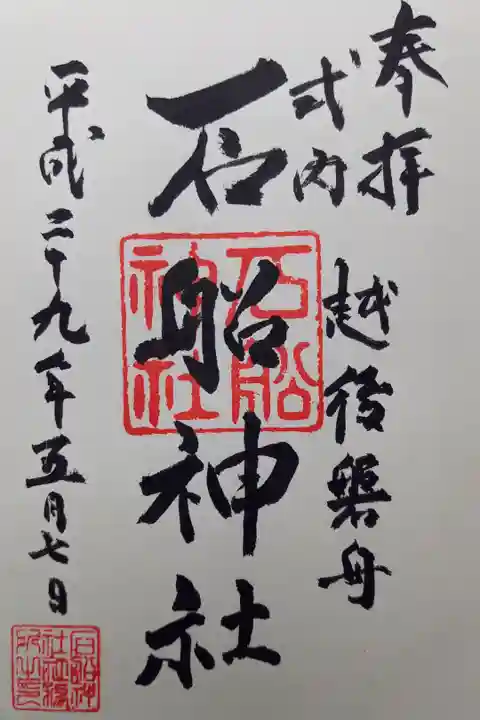 奉拝
越後磐舟
式内
石船神社
石船
神社
平成二十九年五月七日